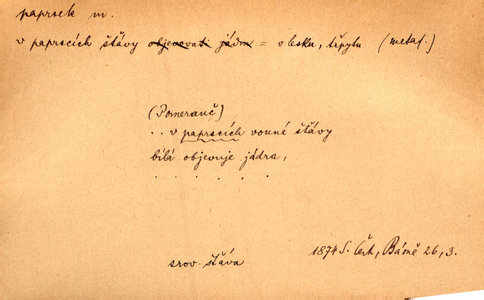 paprsek m.
v paprscích šťávy objevovati jádra = v lesku, třpytu (metaf.)
(Pomeranč)
.. v paprscích vonné šťávy
bílá objevuje jádra,
. . . . . .
srov. šťáva
1874 S. Čech, Básně 26, 3.